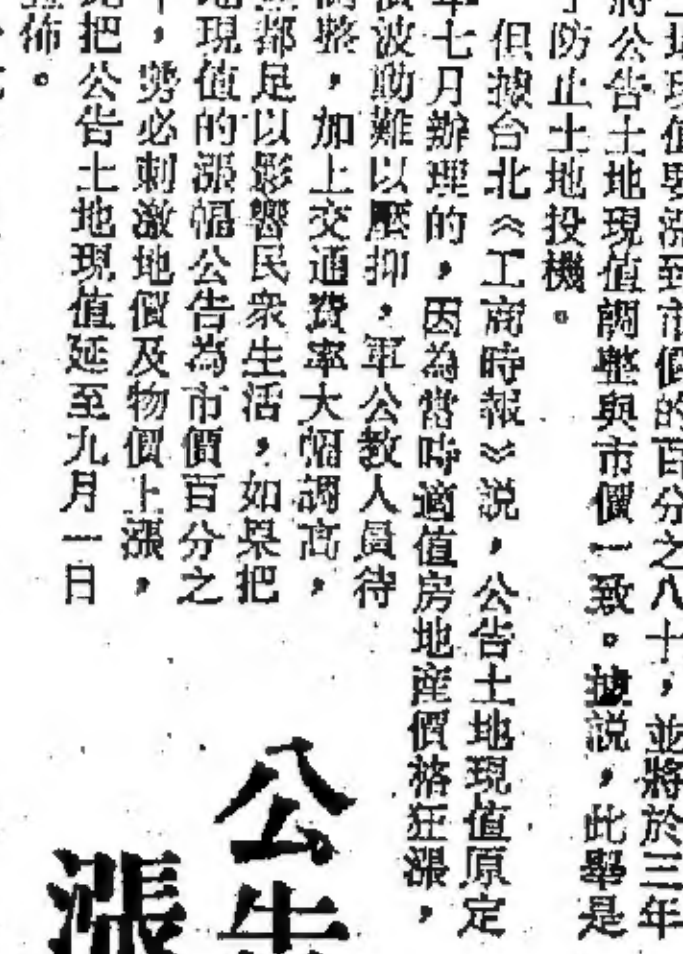 土地現值要漲到市價的百分之八十，並將於三年
將公告土地現值調整與市價一致。據説，此舉是
了防止土地投機。
但據台北《工商時報》説，公告土地現值原定
年七月辦理的，因為當時適值房地產價格狂漲，
價波動難以壓抑，軍公教人員待
調整，加上交通費率大幅調高，
都足以影響民衆生活，如果把
地現值的漲幅公告為市價百分之
十，勢必刺激地價及物價上漲，
此把公告土地現值延至九月一日
發佈。
公告
漲